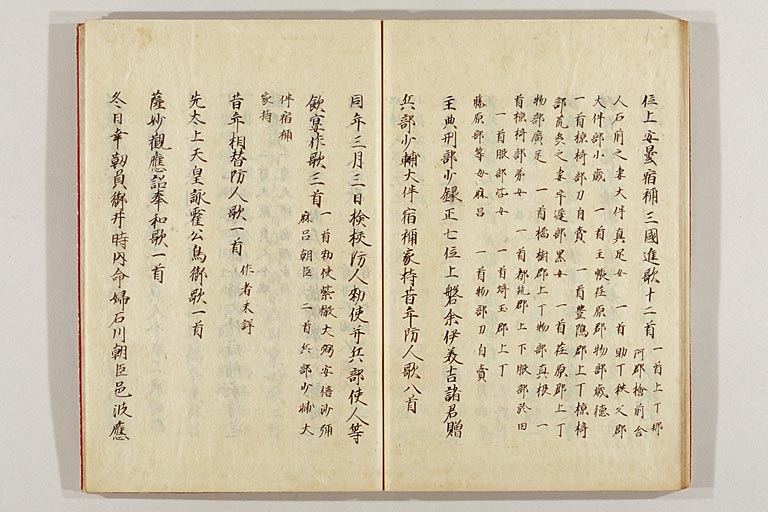 位上安曇宿祢三國進歌十二首 一首上丁那
珂郡檜前舎
人石前之妻大伴真足女 一首助丁秩父郡
大伴部小歳 一首主帳荏原郡物部歳徳
一首椋椅部刀自賣 一首豊嶋郡上丁椋椅
部荒虫之妻宇遅部黒女 一首荏原郡上丁
物部廣足 一首橘樹郡上丁物部真根 一
首椋椅部弟女 一首都筑郡上丁服部於田
一首服部呰女 一首埼玉郡上丁
藤原部等母麻呂 一首物部刀自賣
主典刑部少録正七位上磐余伊美吉諸君贈
兵部少輔大伴宿祢家持昔年防人歌八首
同年三月三日檢挍防人勅使并兵部使人等
飲宴作歌三首 一首勅使紫微大弼安倍沙弥
麻呂朝臣 二首兵部少輔大
伴宿祢
家持
昔年相替防人歌一首 作者未詳
先太上天皇詠霍公鳥御歌一首
薩妙觀應詔奉和歌一首
冬日幸靱負御井時内命婦石川朝臣邑波應